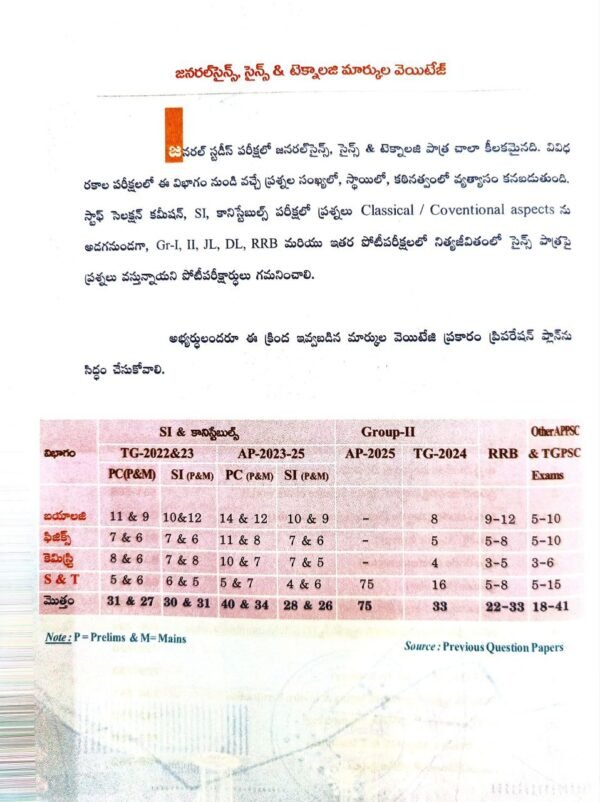 జనరల్‌సైన్స్, సైన్స్ & టెక్నాలజి మార్కుల వెయిటేజ్
జనరల్ స్టడీస్ పరీక్షలో జనరల్‌సైన్స్, సైన్స్ & టెక్నాలజి పాత్ర చాలా కీలకమైనది. వివిధ
రకాల పరీక్షలలో ఈ విభాగం నుండి వచ్చే ప్రశ్నల సంఖ్యలో, స్థాయిలో, కఠినత్వంలో వ్యత్యాసం కనబడుతుంది.
స్టాఫ్ సెలక్షన్ కమీషన్, SI, కానిస్టేబుల్స్ పరీక్షలో ప్రశ్నలు Classical / Coventional aspects ను
అడగనుండగా, Gr-I, II, JL, DL, RRB మరియు ఇతర పోటీపరీక్షలలో నిత్యజీవితంలో సైన్స్ పాత్రపై
ప్రశ్నలు వస్తున్నాయని పోటీపరీక్షార్థులు గమనించాలి.
అభ్యర్థులందరూ ఈ క్రింద ఇవ్వబడిన మార్కుల వెయిటేజి ప్రకారం ప్రిపరేషన్ ప్లాన్‌ను
సిద్ధం చేసుకోవాలి.
విభాగం SI & కానిస్టేబుల్స్ Group-II RRB Other APPSC
TG-2022&23 AP-2023-25 AP-2025 TG-2024 & TGPSC
PC(P&M) SI (P&M) PC (P&M) SI (P&M) Exams
బయాలజి 11 & 9 10&12 14 & 12 10 & 9 - 8 9-12 5-10
ఫిజిక్స్ 7 & 6 7 & 6 11 & 8 7 & 6 - 5 5-8 5-10
కెమిస్ట్రి 8 & 6 7 & 8 10 & 7 7 & 5 - 4 3-5 3-6
S & T 5 & 6 6 & 5 5 & 7 4 & 6 75 16 5-8 5-15
మొత్తం 31 & 27 30 & 31 40 & 34 28 & 26 75 33 22-33 18-41
Note : P = Prelims & M= Mains
Source : Previous Question Papers